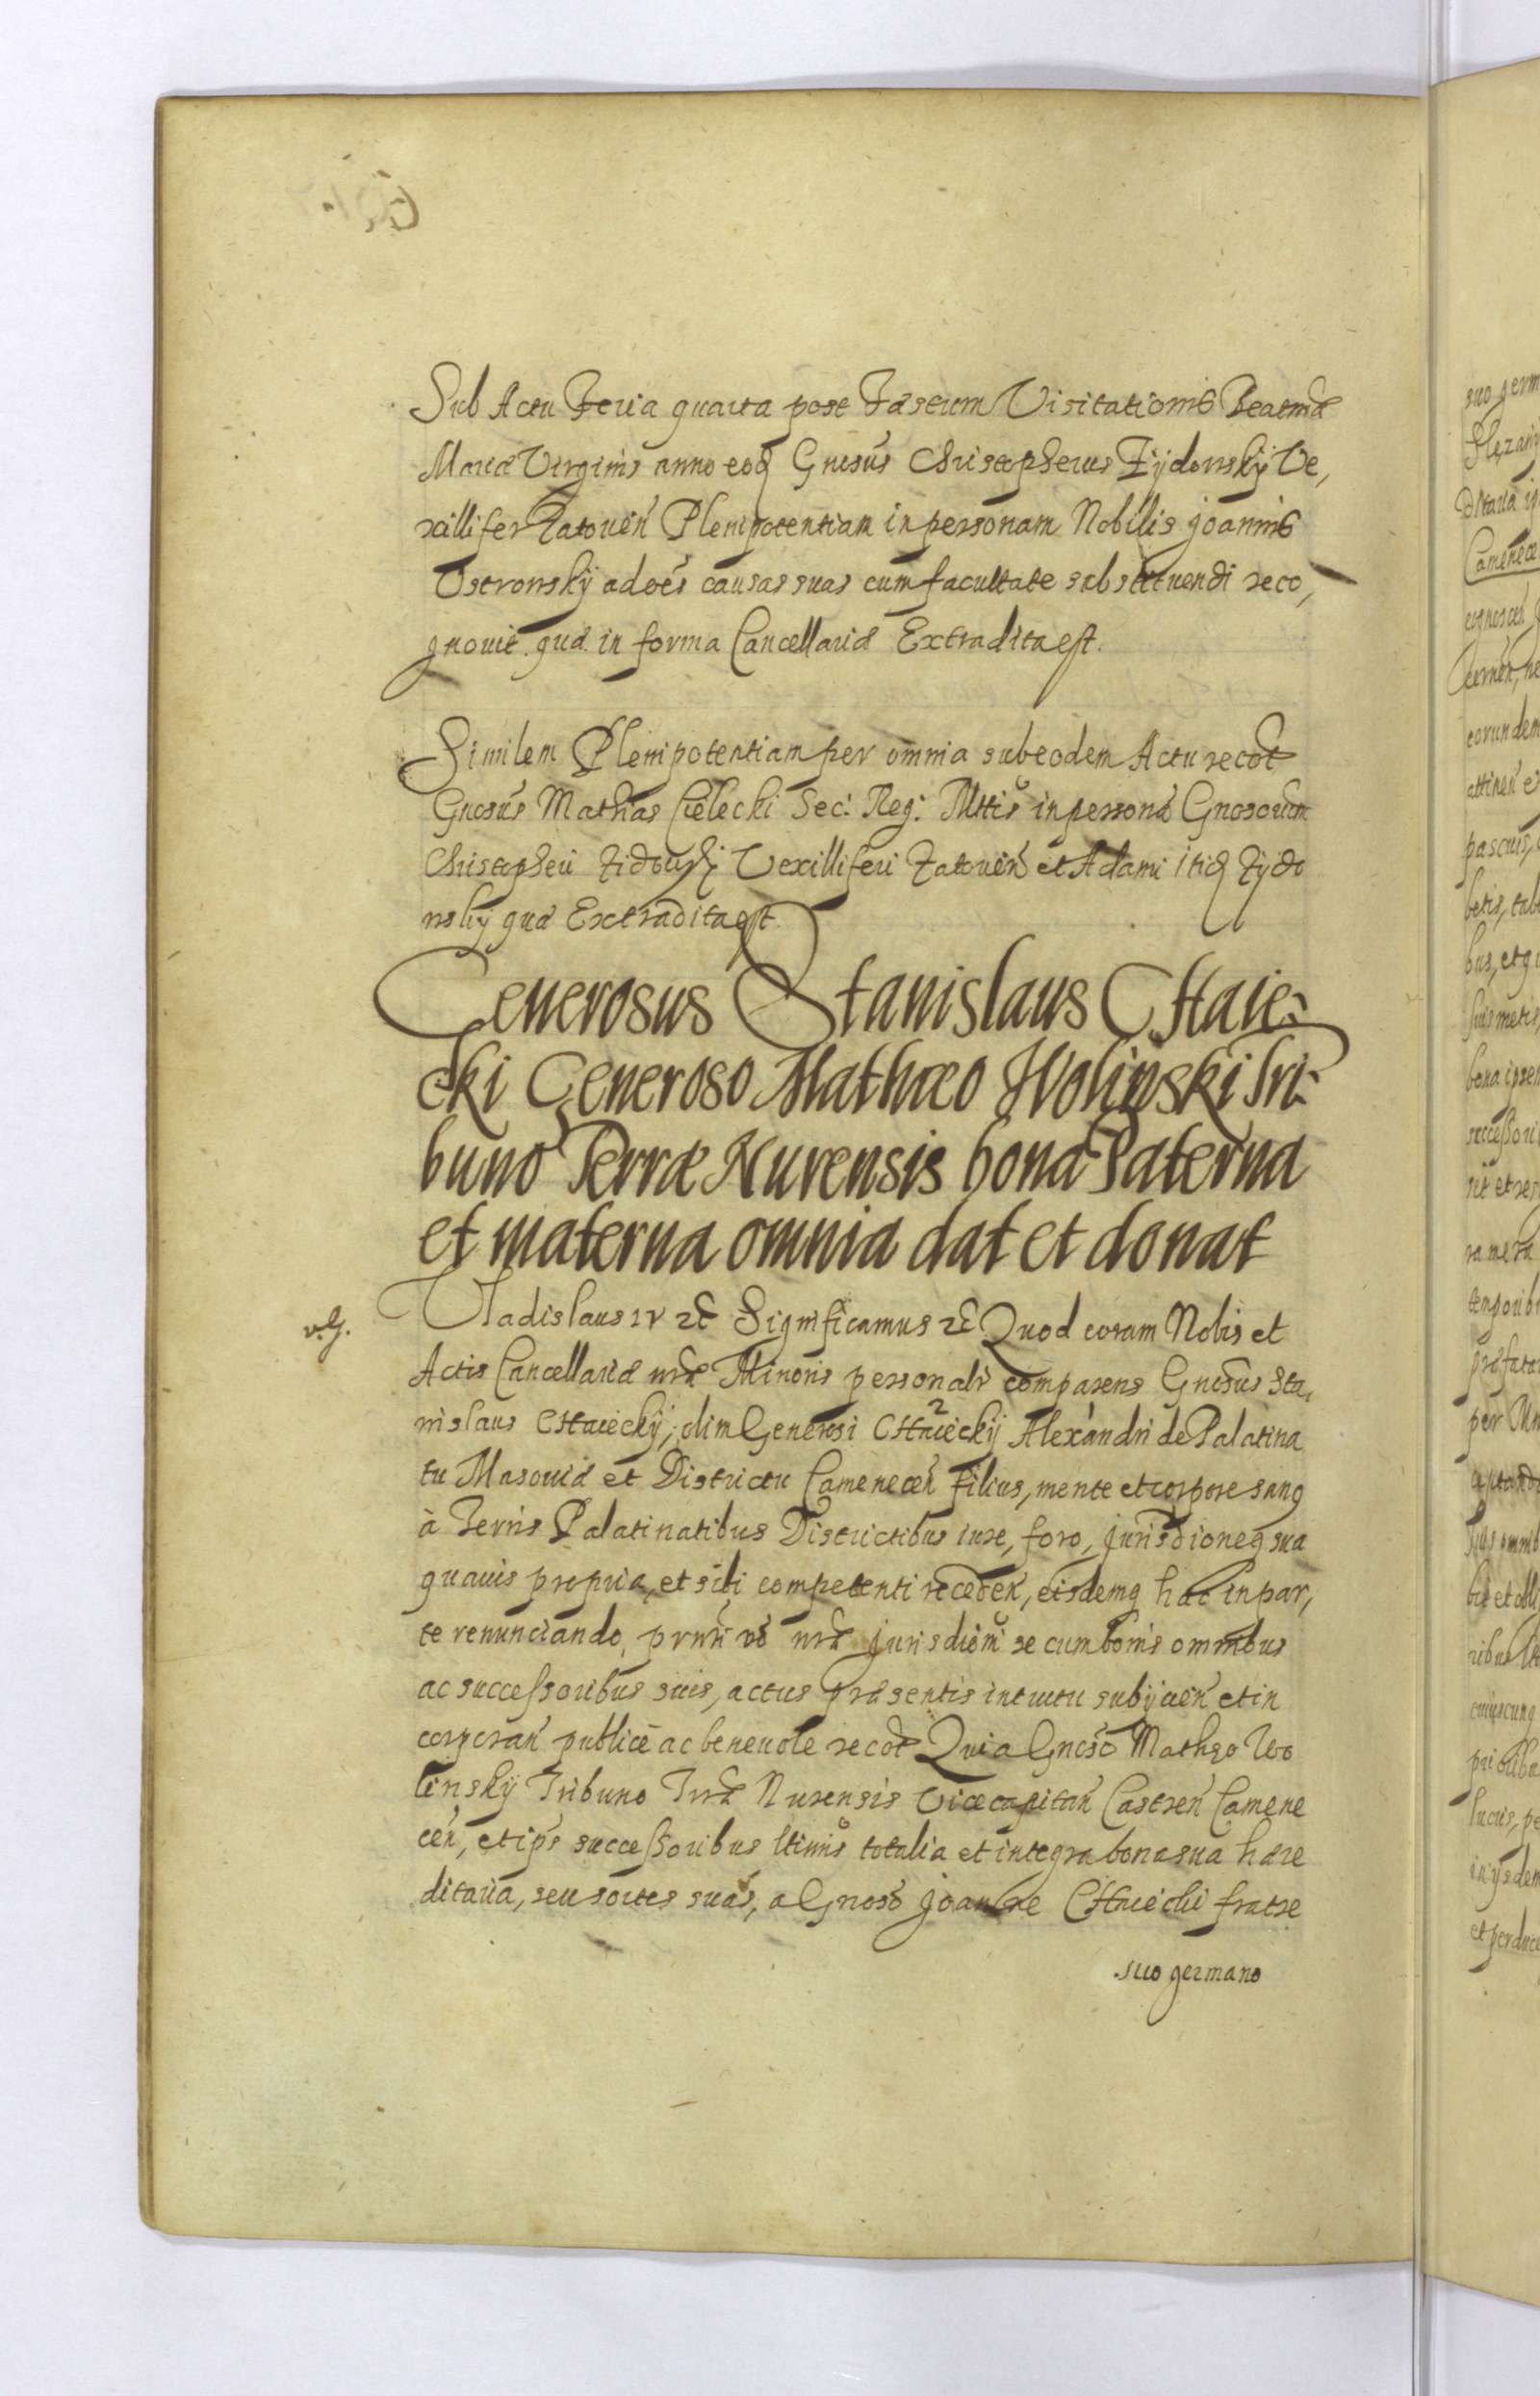 Sub Actu Feria quarta post Festum Visitationis Beatmæ
Mariæ Virginis anno eoq Gnosus Christopherus Zÿdowskÿ Ve,
xillifer Zatorien Plenipotentiam in personam Nobilis Joannis
Ostrowskÿ ad oes causas suas cum facultate substituendi reco,
gnouit. quæ in forma Cancellariæ Extradita est.
Similem Plenipotentiam per omnia sub eodem Actu recot
Gnosus Mathias Cielecki Sec: Reg: Mttis in personā Gnosorum
Christopheri Zidowski Vexilliferi Zatorien et Adami itiq Zÿdo
wskÿ quæ Extradita est
Generosus Stanislaus CHaie-
cki Generoso Mathæo Wolinski Tri-
buno Terræ Nurensis bona Paterna
et materna omnia dat et donat
Vladislaus IV etc Significamus etc Quod coram Nobis et
Actis Cancellariæ nræ Minoris personalr comparens Gnosus Sta,
nislaus CHaieckÿ, olim Generosi CHaieckÿ 2 Alexandri de Palatina
tu Masouiæ et Districtu Camenecen filius, mente et corpore sanq
à Terris Palatinatibus Districtibus iure, foro, jurisdioneq sua
quauis propria, et sibi competenti receden, eisdemq hac in par,
te renunciando, prnti vo nræ jurisdioni se cum bonis omnibus
ac successoribus suis, actus præsentis intuitu subijcien et in
corporan publicè ac beneuole recot Quia Gnoso Mathæo Wo
linskÿ Tribuno Træ Nurensis Vicecapitan Castren Camene
cen, et ips successoribus ltimis totalia et integra bona sua hære
ditaria, seu sortes suas, a Gnoso Joanne CHaiecki fratre
suo germano